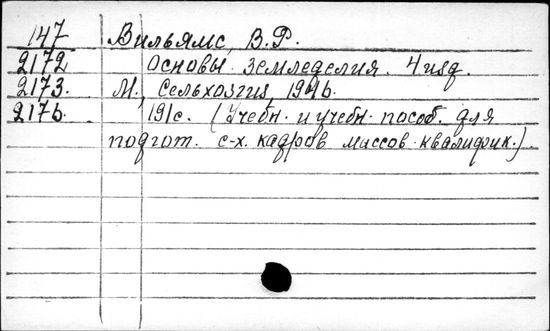 147 Вильямс, В.Р.
2172 Основы земледелия. 4 изд.
2173. М., Сельхозгиз, 1946.
2176. 191с. (Учебн. и учебн. пособ. для
подгот. с-х. кадров массов. квалифик.)